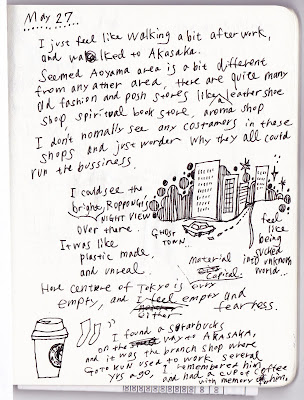 May 27
I just feel like walking a bit after work,
and walked to Akasaka.
Seemed Aoyama area is a bit different
from any other area, there are quite many
old fashion and posh stores like leather shoe
shop, spiritual book store, aroma shop
I don't nomally see any costamers in these
shops and just worder why they all could
run the bussiness.
I could see the
bright, Roppongi
NIGHT VIEW
over there.
It was like
plastic made,
and unreal.
GHOST
TOWN
feel
like
being
sucked
into unknown
world...
material
capital.
Here centere of Tokyo is very
empty, and I feel empty and
bitter fearless.
I found a starbucks
on the way to AKASAKA,
and it was the branch shop where
GOTO KUN used to work several
yrs ago, I remembered him
and had a cup of coffee
with memory of him.